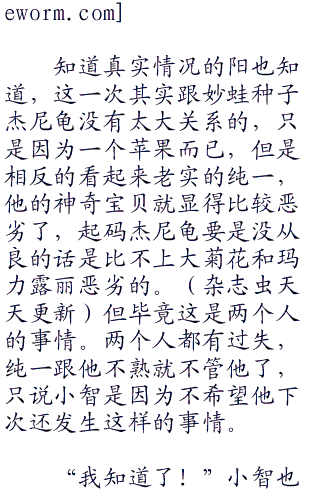 eworm.com]
知道真实情况的阳也知
道，这一次其实跟妙蛙种子
杰尼龟没有太大关系的，只
是因为一个苹果而已，但是
相反的看起来老实的纯一，
他的神奇宝贝就显得比较恶
劣了，起码杰尼龟要是没从
良的话是比不上大菊花和玛
力露丽恶劣的。（杂志虫天
天更新）但毕竟这是两个人
的事情。两个人都有过失，
纯一跟他不熟就不管他了，
只说小智是因为不希望他下
次还发生这样的事情。
“我知道了！”小智也